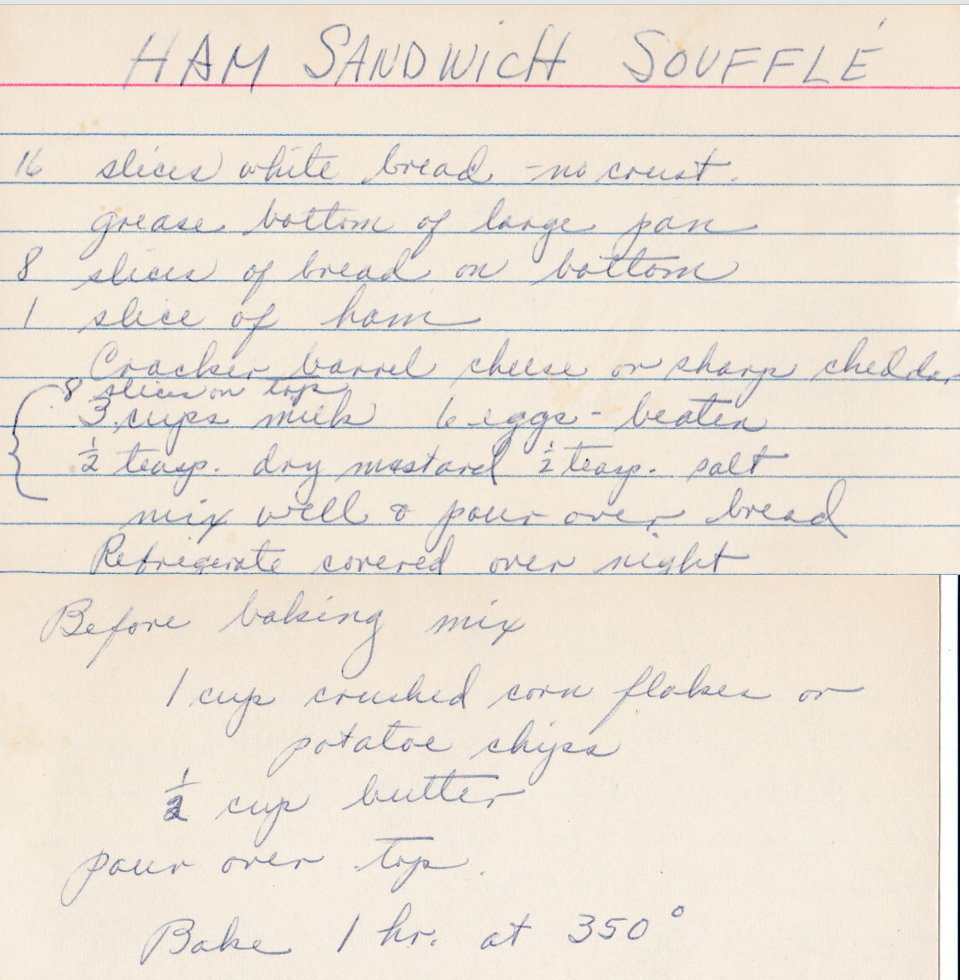 HAM SANDWICH SOUFFLÉ
16 slices white bread - no crust.
grease bottom of large pan
8 slices of bread on bottom
1 slice of ham
Cracker barrel cheese or sharp cheddar
8 slices on top
3 cups milk 6 eggs - beaten
½ teasp. dry mustard ½ teasp. salt
mix well & pour over bread
Refrigerate covered over night
Before baking mix
1 cup crushed corn flakes or
potatoe chips
½ cup butter
pour over top.
Bake 1 hr. at 350°